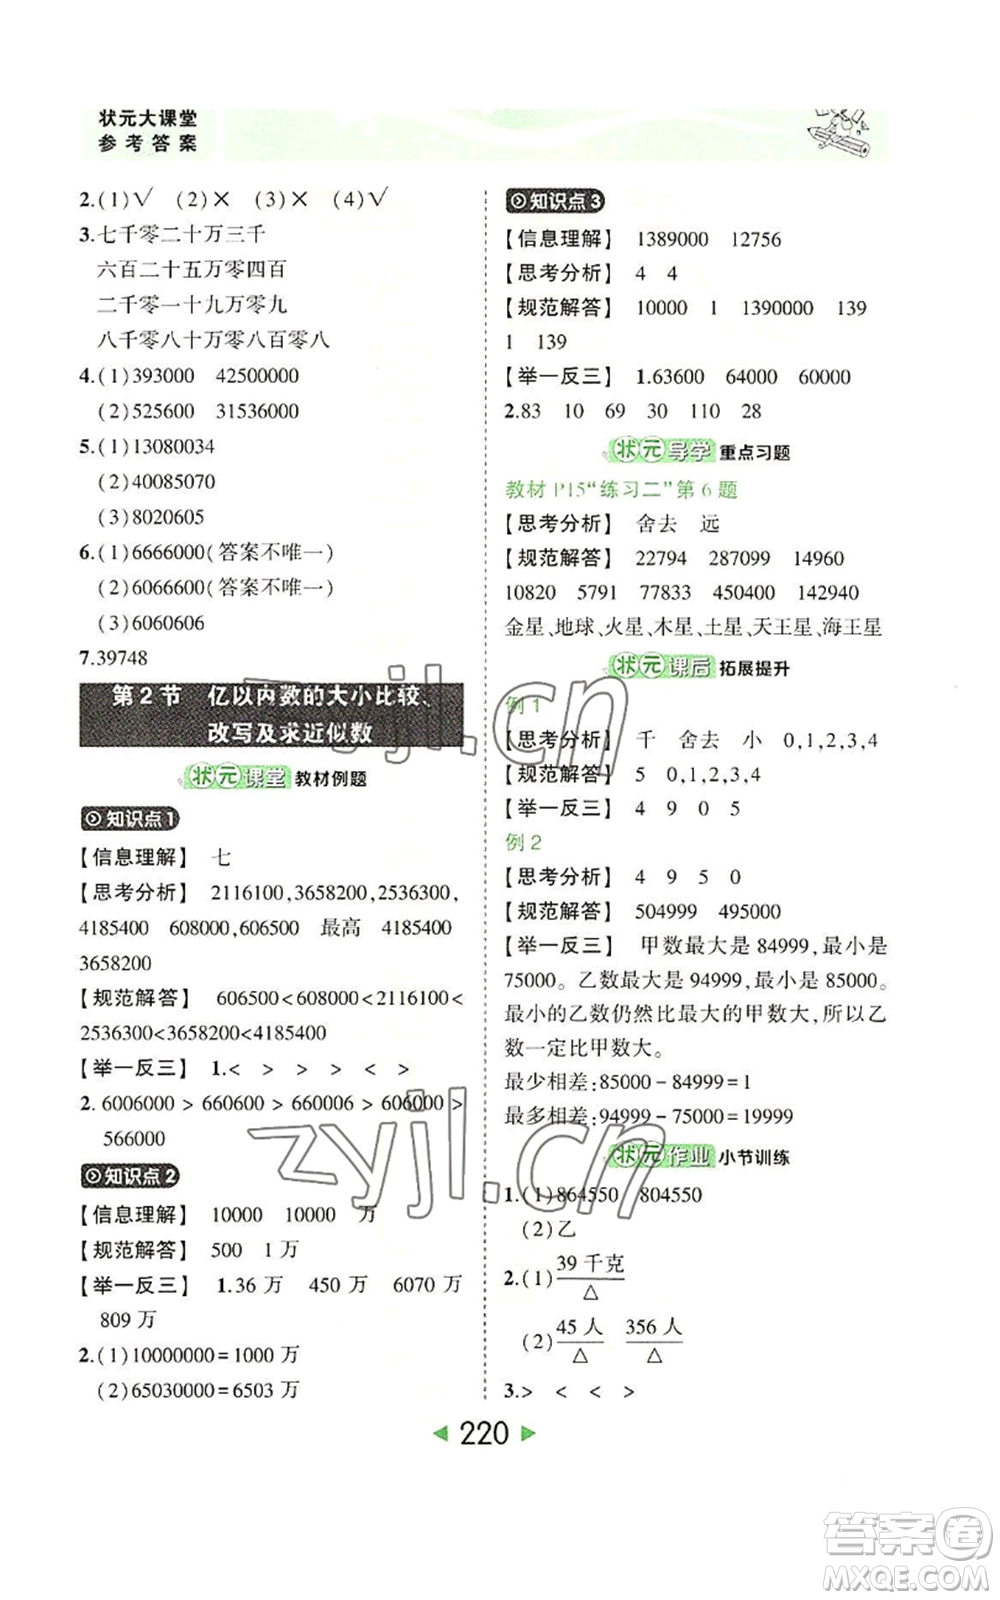 状元大课堂
参考答案
2.(1)√ (2)× (3)× (4)√
3.七千零二十万三千
六百二十五万零四百
二千零一十九万零九
八千零八十万零八百零八
4.(1)393000 42500000
(2)525600 31536000
5.(1)13080034
(2)40085070
(3)8020605
6.(1)6666000(答案不唯一)
(2)6066600(答案不唯一)
(3)6060606
7.39748
第2节 亿以内数的大小比较、
改写及求近似数
状元课堂 教材例题
知识点1
【信息理解】 七
【思考分析】 2116100,3658200,2536300,
4185400 608000,606500 最高 4185400
3658200
【规范解答】 606500<608000<2116100<
2536300<3658200<4185400
【举一反三】 1.< > > > < >
2. 6006000 > 660600 > 660006 > 606000 >
566000
知识点2
【信息理解】 10000 10000 万
【规范解答】 500 1万
【举一反三】 1.36万 450万 6070万
809万
2.(1)10000000=1000万
(2)65030000=6503万
知识点3
【信息理解】 1389000 12756
【思考分析】 4 4
【规范解答】 10000 1 1390000 139
1 139
【举一反三】 1.63600 64000 60000
2.83 10 69 30 110 28
状元导学 重点习题
教材P15“练习二”第6题
【思考分析】 舍去 远
【规范解答】 22794 287099 14960
10820 5791 77833 142400 942940
金星、地球、火星、木星、土星、天王星、海王星
状元课后 拓展提升
例1
【思考分析】 千 舍去 小 0,1,2,3,4
【规范解答】 5 0,1,2,3,4
【举一反三】 4 9 0 5
例2
【思考分析】 4 9 5 0
【规范解答】 504999 495000
【举一反三】 甲数最大是84999,最小是
75000。乙数最大是94999,最小是85000。
最小的乙数仍然比最大的甲数大,所以乙
数一定比甲数大。
最少相差:85000-84999=1
最多相差:94999-75000=19999
状元作业 小节训练
1.(1)864550 804550
(2)乙
2.(1)39千克
△
(2)45人 356人
△ △
3.> < < >
220
zyjl.cn
zyjl.cn
答案圈
MXQE.COM